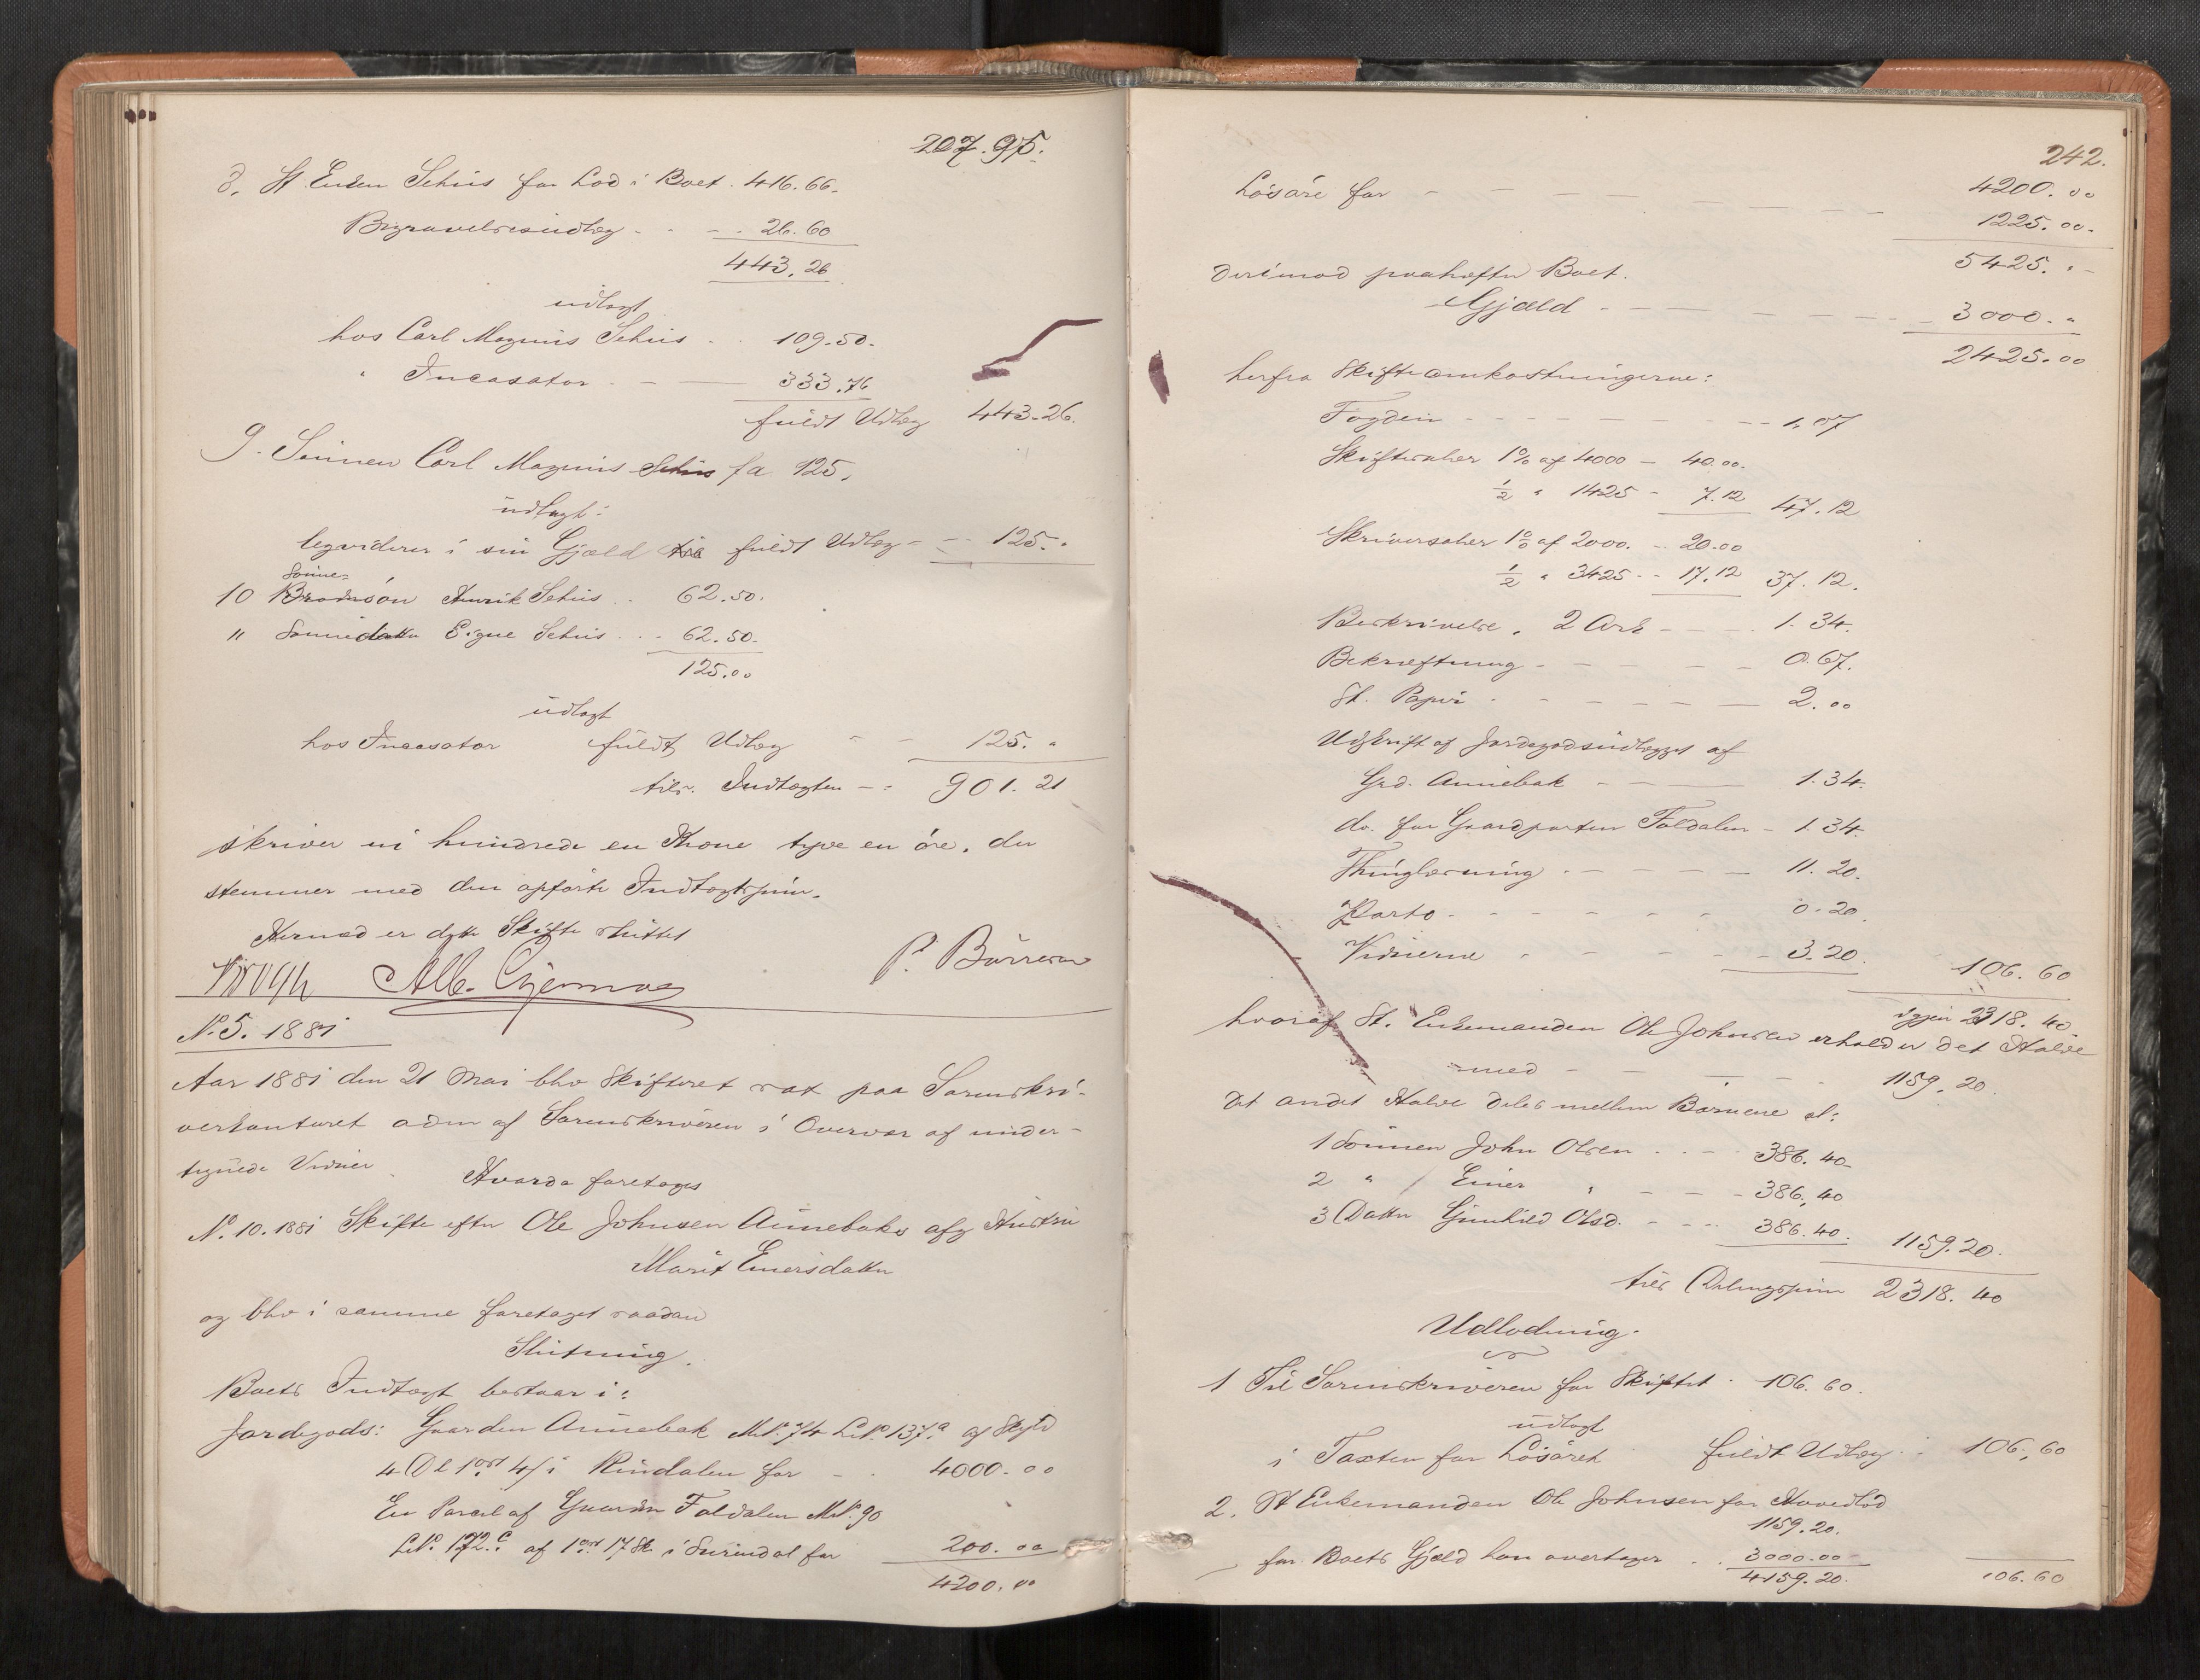 207.95.
d. St. Enken Schiis for Lod i Boet. 416.66.
Begravelsesudlæg - - - 26.60
443.26
udlagt
hos Carl Magnus Schiis - 109.50.
" Incasator - - 333.76
fuldt Udlæg 443.26.
9. Sönnen Carl Magnus Schiis fa 125.
udlagt:
leqviderer i sin Gjæld fuldt Udlæg - - 125. "
Sönne-
10 Brodersön Henrik Schiis . . 62.50.
" Sönnedatter Signe Schiis . . - 62.50.
125.00
udlagt
hos Incasator fuldt Udlæg - - 125. "
tils. Indtægten - - 901.21
skriver ni hundrede en Krone tyve en öre, der
stemmer med den opförte Indtægtssum.
Hermed er dette Skifte sluttet
Krogh Alb. Gjermoe P. Börresen
No. 5. 1881
Aar 1881 den 21 Mai blev Skifteret sat paa Sorenskri-
verkontoret adm af Sorenskriveren i Overvær af under-
tegnede Vidner.
Hvorda foretoges
No. 10. 1881 Skifte efter Ole Johnsen Aunebaks afg Hustru
Marit Einersdatter
og blev i samme foretaget saadan
Slutning.
Boets Indtægt bestaar i:
Jordegods: Gaarden Aunebak M.No. 74 L.No. 137a af Skyld
4 Dl 1 ort 4 / i Rindalen for - . 4000.00
En Parcel af Gaarden Foldalen M.No. 90
L.No. 172c. af 1 ort 17 Sk. i Surendal for 200.00
4200.00
242.
4200.00
Lösöre for - - - - - - 1225.00.
5425. " -
derimod paahefter Boet.
Gjæld - - - - - - 3000. "
2425.00
herfra Skifteomkostningerne:
Fogden - - - - - - 1.07
Skiftesaler 1% af 4000 - 40.00.
1/2 " 1425 - 7.12 47.12
Skriversaler 1% af 2000. - 20.00
1/2 " 3425 - - 17.12 37.12.
Beskrivelse, 2 Ark - - - 1.34.
Bekræftning - - - - - 0.67.
St. Papir - - - - - - 2.00
Udskrift af Jordegodsudlægget af
Grd. Aunebak - - - 1.34.
do. for Gaardparten Foldalen - 1.34.
Thinglæsning - - - - - 11.20.
Porto - - - - - - - 0.20.
Vidnerne - - - - - - 3.20. 106.60
igjen 2318.40.
hvoraf St. Enkemanden Ole Johnsen erholder det Halve
med - - - - - 1159.20.
Det andet Halve deles mellem Börnene sl:
1 Sönnen John Olsen . . - - 386.40-
2 " Einer " - - - - 386.40
3 Datter Gunhild Olsd. - - - 386.40. 1159.20.
tils Delingssum 2318.40
Udlodning.
1 Til Sorenskriveren for Skiftet - 106.60.
udlagt
i Taxten for Lösöret fuldt Udlæg - 106.60
2. St Enkemanden Ole Johnsen for Hovedlod
1159.20.
for Boets Gjæld han overtager . . 3000.00
4159.20. 106.60